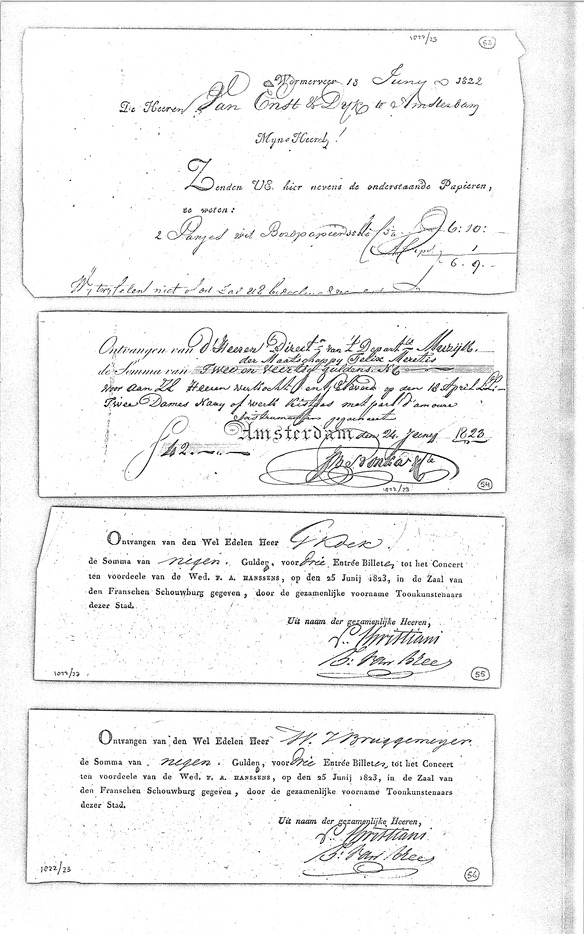 1022/23
53
Wormerveer 13 Juny 1822
De Heeren Van Enst & Dyk te Amsterdam
Myne Heeren!
Zenden UE. hier nevens de onderstaande Papieren,
te weten:
2 wit 6:10:
6.9.
Wy twyfelen niet
Ontvangen van d'Heeren Direct.n van 't Depart.t Muzijk
der Maatschappy Felix Meritis
de Somma van Twee en Veertig guldens
voor aan ZE Heeren verkocht en Gelevert op den 18 April
Twee Dames Naay of werk Kistjes met
Amsterdam den 24 Juny 1823
ƒ 42.
1022/23
54
Ontvangen van den Wel Edelen Heer G Kock.
de Somma van negen. Gulden, voor drie Entrée Billetten, tot het Concert
ten voordeele van de Wed. F. A. HANSSENS, op den 25 Junij 1823, in de Zaal van
den Franschen Schouwburg gegeven, door de gezamenlijke voorname Toonkunstenaars
dezer Stad.
Uit naam der gezamenlijke Heeren,
Christiani
Van Bree
1022/23
55
Ontvangen van den Wel Edelen Heer W. J Bruggemeyer
de Somma van negen. Gulden, voor drie Entrée Billetten, tot het Concert
ten voordeele van de Wed. F. A. HANSSENS, op den 25 Junij 1823, in de Zaal van
den Franschen Schouwburg gegeven, door de gezamenlijke voorname Toonkunstenaars
dezer Stad.
Uit naam der gezamenlijke Heeren,
Christiani
Van Bree
1022/23
56